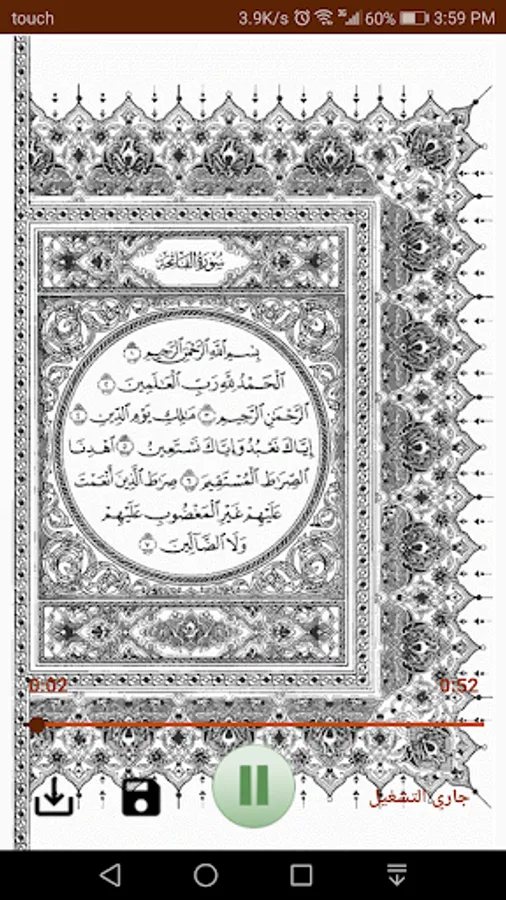 touch
3.9K/s 3G 60% 3:59 PM
سورة الفاتحة
بِسْمِ ٱللَّهِ ٱلرَّحْمَٰنِ ٱلرَّحِيمِ ١
ٱلْحَمْدُ لِلَّهِ رَبِّ ٱلْعَٰلَمِينَ ٢
ٱلرَّحْمَٰنِ ٱلرَّحِيمِ ٣ مَٰلِكِ يَوْمِ ٱلدِّينِ ٤
إِيَّاكَ نَعْبُدُ وَإِيَّاكَ نَسْتَعِينُ ٥ ٱهْدِنَا
ٱلصِّرَٰطَ ٱلْمُسْتَقِيمَ ٦ صِرَٰطَ ٱلَّذِينَ أَنْعَمْتَ
عَلَيْهِمْ غَيْرِ ٱلْمَغْضُوبِ عَلَيْهِمْ
وَلَا ٱلضَّآلِّينَ ٧
0:02 0:52
جاري التشغيل